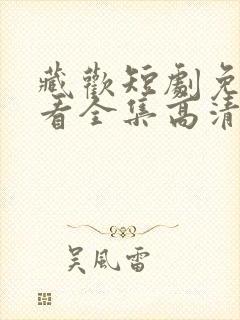 藏歡短劇免
看全集高清
吴風雷